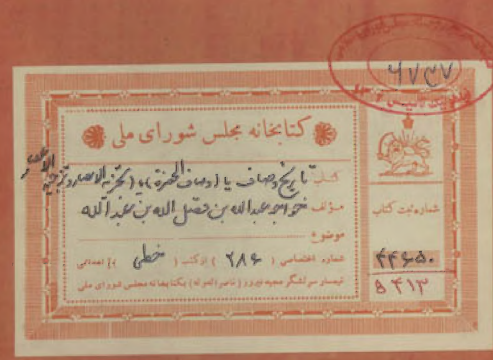 ۶۷۳۷
کتابخانه مجلس شورای ملی
کتاب تاریخ وصاف یا (وصاف الحضرة) یا (تجزیه الامصار و تزجیة الاعصار
مؤلف خواجه عبدالله بن فضل الله بن عبدالله
موضوع
شماره اختصاصی ( ۲۸۶ ) از کتب ( خطی ) اهدائی
تیمسار سرلشگر مجید فیروز (ناصرالدوله) بکتابخانه مجلس شورای ملی
شماره ثبت کتاب
۴۴۶۵۰
۵۴۱۳